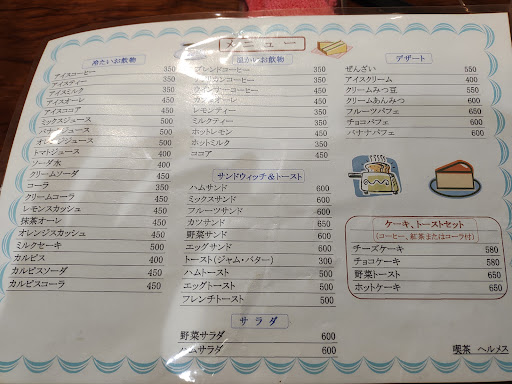 メニュー
冷たいお飲物
アイスコーヒー 350
アイスティー 350
アイスミルク 350
アイスオーレ 450
アイスココア 450
ミックスジュース 500
バナナジュース 500
オレンジジュース 500
トマトジュース 400
ソーダ水 400
クリームソーダ 450
コーラ 350
クリームコーラ 450
レモンスカッシュ 450
抹茶オーレ 450
オレンジスカッシュ 450
ミルクセーキ 500
カルピス 400
カルピスソーダ 450
カルピスコーラ 450
温かいお飲物
ブレンドコーヒー 350
アメリカンコーヒー 350
ウインナーコーヒー 450
カフェオーレ 450
レモンティー 350
ミルクティー 350
ホットレモン 450
ホットミルク 350
ココア 450
サンドウィッチ&トースト
ハムサンド 600
ミックスサンド 600
フルーツサンド 600
カツサンド 650
野菜サンド 600
エッグサンド 600
トースト(ジャム・バター) 300
ハムトースト 500
エッグトースト 500
フレンチトースト 500
サラダ
野菜サラダ 600
ハムサラダ 600
デザート
ぜんざい 550
アイスクリーム 400
クリームみつ豆 550
クリームあんみつ 600
フルーツパフェ 650
チョコパフェ 650
バナナパフェ 650
ケーキ、トーストセット
(コーヒー、紅茶またはコーラ付)
チーズケーキ 580
チョコケーキ 580
野菜トースト 650
ホットケーキ 650
喫茶 ヘルメス